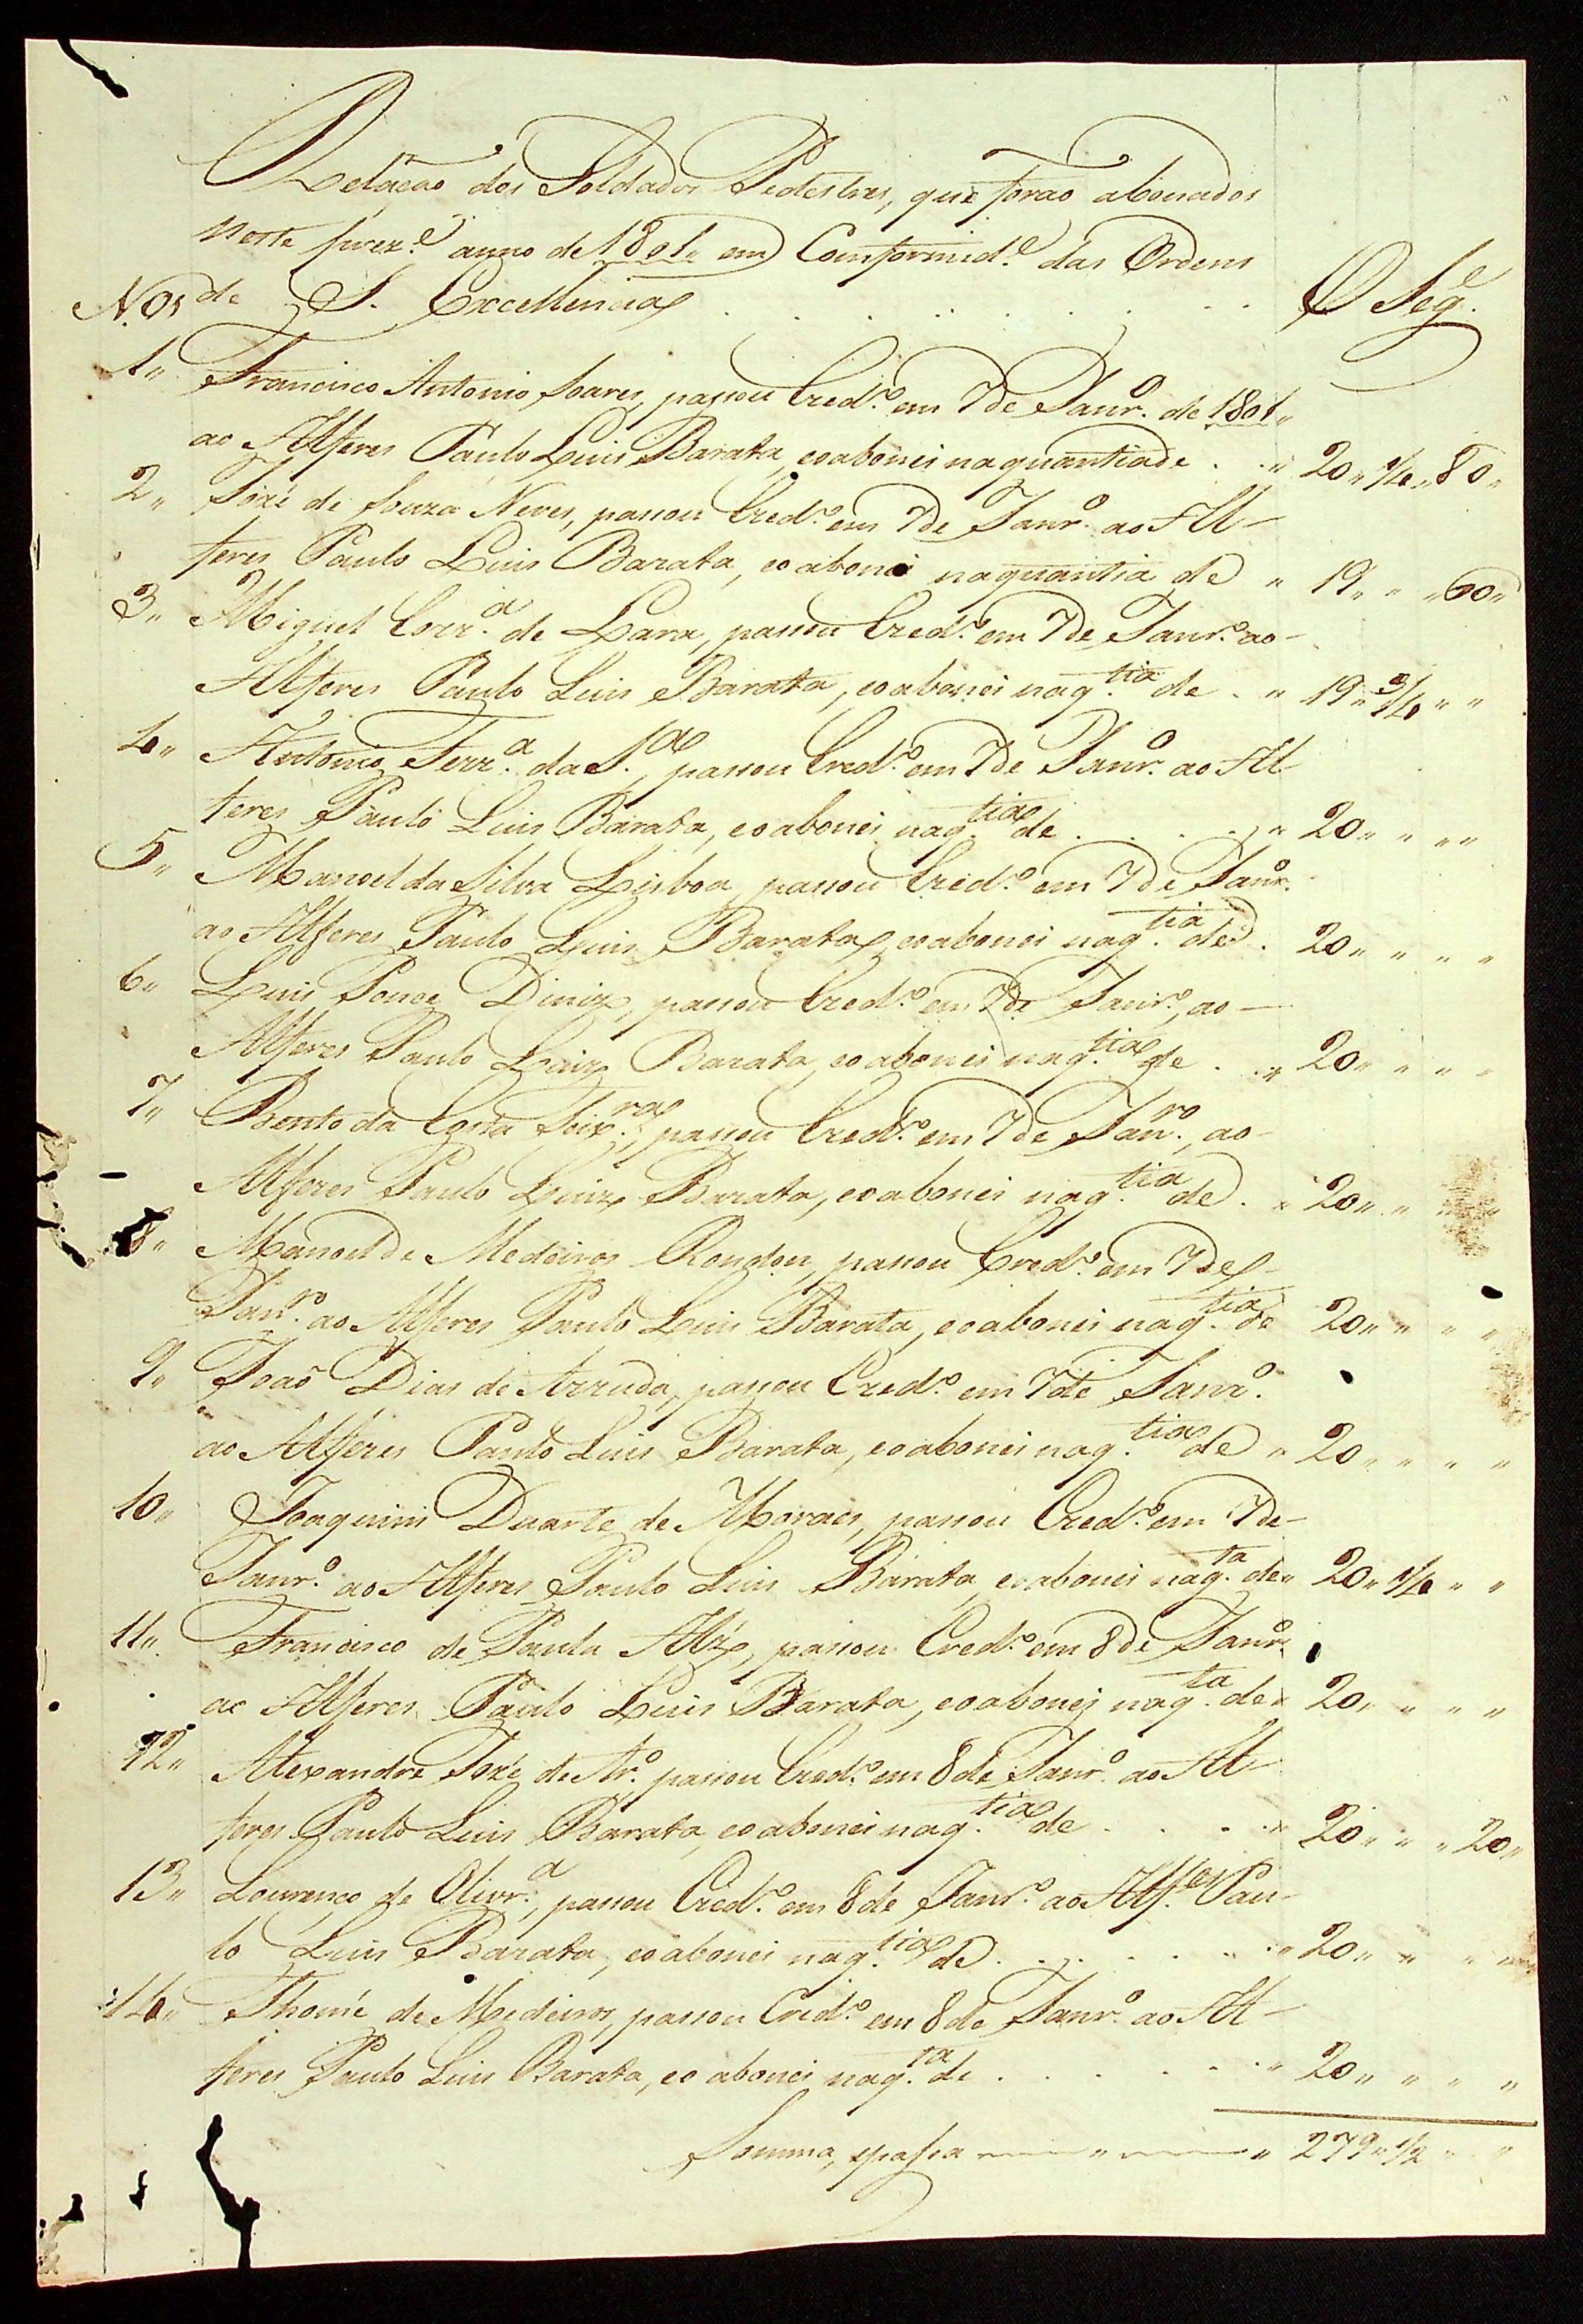 Relaçaõ dos Soldados Pedestres, que foraõ abonados
neste prez.e anno de 1801 em Comformid.e das Ordens
N.os de S. Excellencia . . . . . . . . O Seg.e
1,, Francisco Antonio Soares, passou Cred.o em 7 de Janr.o de 1801,,
ao Alferes Paulo Luis Barata, eo abonei na quantia de . . ,, 20,, 1/4,, 80,,
2,, Jozé de Souza Neves, passou Cred.o em 7 de Janr.o ao Al-
feres Paulo Luis Barata, eo abonei na quantia de ,, 19,, ,, ,, 60,,
3,, Miguel Corr.a de Lara, passou Cred.o em 7 de Janr.o ao-
Alferes Paulo Luis Barata, eo abonei na q.tia de . ,, 19,, 3/4,, ,,
4,, Antonio Ferr.a da S.a, passou Cred.o em 7 de Janr.o ao Al-
feres Paulo Luis Barata, eo abonei na q.tia de . . . . ,, 20,, ,, ,, ,,
5,, Manoel da Silva Lisboa, passou Cred.o em 7 de Janr.o
ao Alferes Paulo Luis Barata, eo abonei na q.tia de . 20,, ,, ,, ,,
6,, Luis Ponce Diniz, passou Cred.o em 7 de Janr.o, ao-
Alferes Paulo Luiz Barata, eo abonei na q.tia de . . ,, 20,, ,, ,, ,,
7,, Bento da Costa Seix.ra, passou Cred.o em 7 de Jan.ro, ao-
Alferes Paulo Luiz Barata, eo abonei na q.tia de . ,, 20,, ,, ,, ,,
8,, Manoel de Medeiros Rondon, passou Cred.o em 7 de-
Jan.ro ao Alferes Paulo Luis Barata, eo abonei na q.tia de 20,, ,, ,, ,,
9,, Joaõ Dias de Arruda, passou Cred.o em 7 de Janr.o
ao Alferes Paulo Luis Barata, eo abonei na q.tia de ,, 20,, ,, ,, ,,
10,, Joaquim Duarte de Moraes, passou Cred.o em 7 de-
Janr.o ao Alferes Paulo Luis Barata, eo abonei na q.ta de,, 20,, 1/4,, ,,
11,, Francisco de Paula Alz, passou Cred.o em 8 de Janr.o
ao Alferes Paulo Luis Barata, eo abonei na q.ta de,, 20,, ,, ,, ,,
12,, Alexandre Jozé de Ar.o passou Cred.o em 8 de Janr.o ao Al-
feres Paulo Luis Barata, eo abonei na q.tia de . . . . ,, 20,, ,, ,, 20,,
13,, Lourenço de Olivr.a, passou Cred.o em 8 de Janr.o ao Alf.es Pau-
lo Luis Barata, eo abonei na q.tia de . . . . . . . ,, 20,, ,, ,, ,,
14,, Thomé de Medeiros, passou Cred.o em 8 de Janr.o ao Al-
feres Paulo Luis Barata, eo abonei na q.ta de . . . . . . ,, 20,, ,, ,, ,,
Somma, epassa ,, ,, 279,, 1/2 ,, ,,